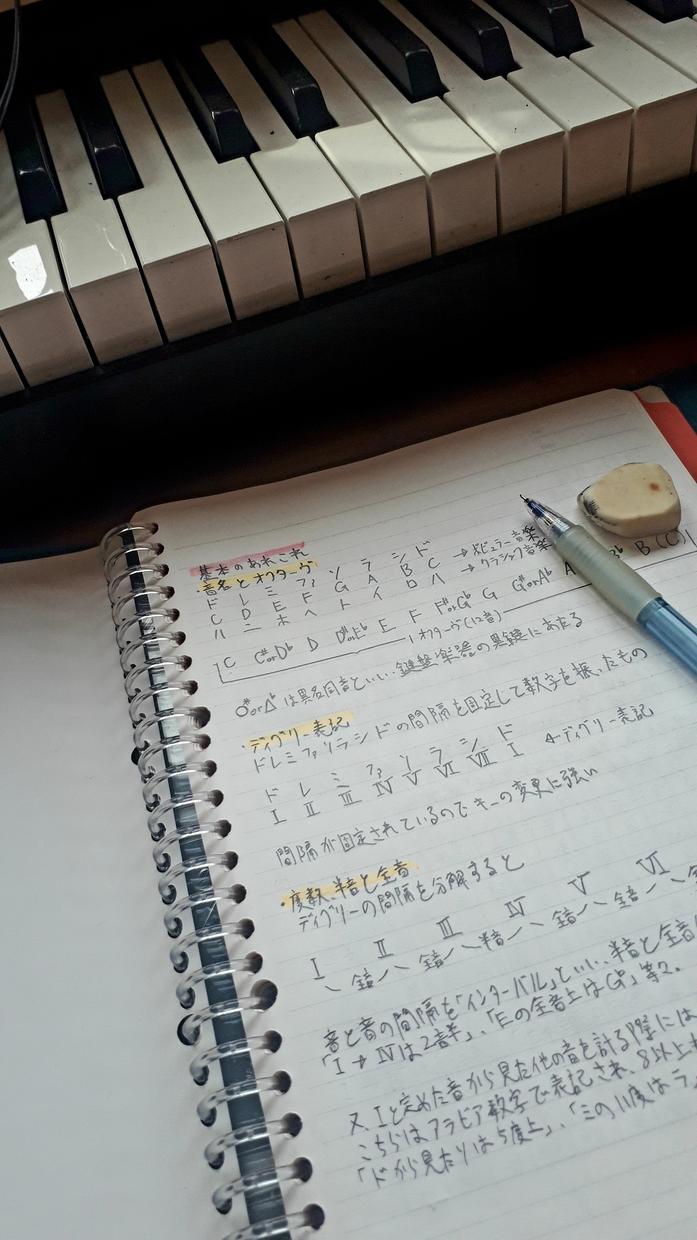 基本のあれこれ
・音名とオクターヴ
ド レ ミ ファ ソ ラ シ ド
C D E F G A B C → ポピュラー音楽
ハ ニ ホ ヘ ト イ ロ ハ → クラシック音楽
C C#orD♭ D D#orE♭ E F F#orG♭ G G#orA♭ A B (C)
1オクターヴ(12音)
○#or△♭は異名同音といい、鍵盤楽器の黒鍵にあたる
・ディグリー表記
ドレミファソラシドの間隔を固定して数字を振ったもの
ド レ ミ ファ ソ ラ シ ド
I II III IV V VI VII I ←ディグリー表記
間隔が固定されているのでキーの変更に強い
・度数、半音と全音
ディグリーの間隔を分解すると
I II III IV V VI
全音 全音 半音 全音 全音
音と音の間隔を「インターバル」といい、半音と全音
「I→IVは2音半」、「Eの全音上はG♭」等々。
又、Iと定めた音から見た他の音を計る際には
こちらはアラビア数字で表記され、8以上も
「ドから見たソは5度上」、「ミの11度はラ